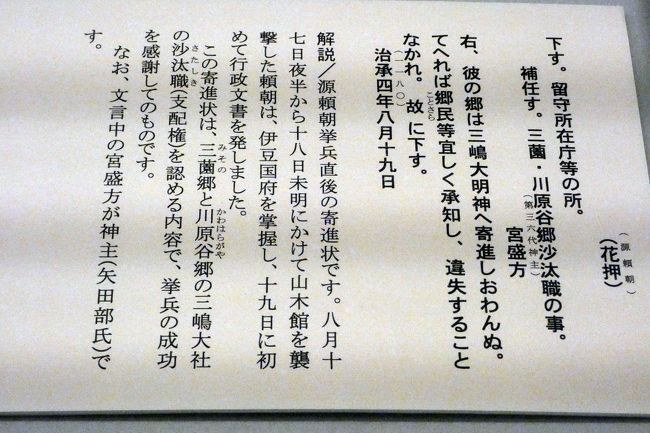 (源頼朝)
(花押)
下す。留守所在庁等の所。
補任す。三薗・川原谷郷沙汰職の事。
(第三六代神主)
宮盛方
右、彼の郷は三嶋大明神へ寄進しおわんぬ。
てへれば郷民等宜しく承知し、違失すること
なかれ。故に下す。
ことさら
(一一八〇)
治承四年八月十九日
解説/源頼朝挙兵直後の寄進状です。八月十
七日夜半から十八日未明にかけて山木館を襲
撃した頼朝は、伊豆国府を掌握し、十九日に初
めて行政文書を発しました。
この寄進状は、三薗郷と川原谷郷の三嶋大社
みその
かわはらがや
の沙汰職(支配権)を認める内容で、挙兵の成功
さたしき
を感謝してのものです。
なお、文言中の宮盛方が神主(矢田部氏)で
す。